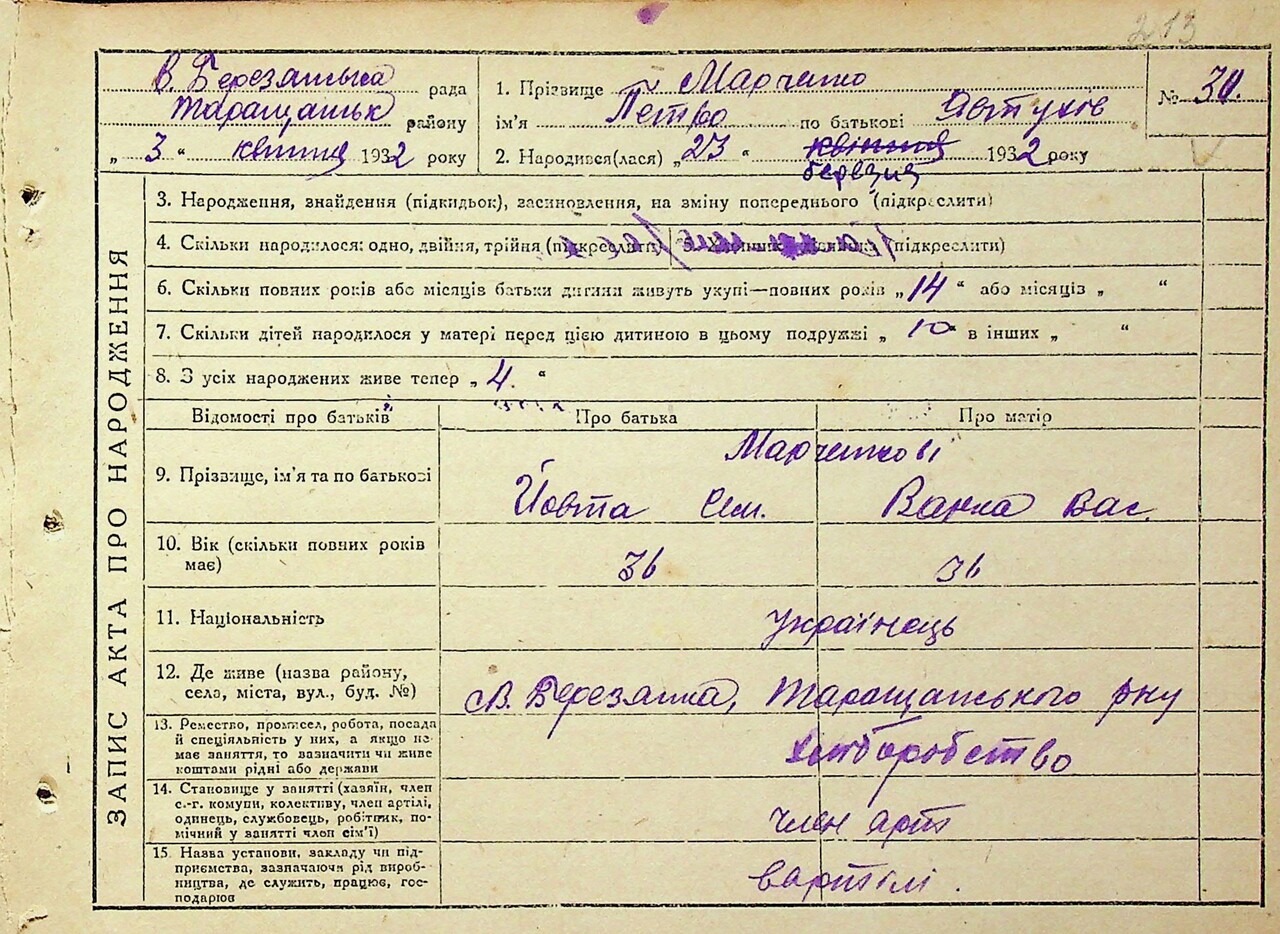 213
В. Березянська рада
Таращанськ району
„ 3 “ квітня 1932 року
1. Прізвище Марченко
ім'я Петро по батькові Явтухів
2. Народився(лася) „ 23 “ квітня 1932 року
березня
№ 30.
ЗАПИС АКТА ПРО НАРОДЖЕННЯ
3. Народження, знайдення (підкидьок), засиновлення, на зміну попереднього (підкреслити)
4. Скільки народилося: одно, двійня, трійня (підкреслити) 5. (підкреслити)
6. Скільки повних років або місяців батьки дитини живуть укупі—повних років „ 14 “ або місяців „ “
7. Скільки дітей народилося у матері перед цією дитиною в цьому подружжі „ 10 “ в інших „ “
8. З усіх народжених живе тепер „ 4. “
Відомості про батьків Про батька Про матір
Марченкові
9. Прізвище, ім'я та по батькові Йовта Сем. Варка Вас.
10. Вік (скільки повних років
має) 36 36
11. Національність українець
12. Де живе (назва району,
села, міста, вул., буд. №) В. Березянка, Таращанського рну
13. Ремество, промисел, робота, посада
й спеціяльність у них, а якщо не
має заняття, то вазначити чи живе
коштами рідні або держави
хліборобство
14. Становище у занятті (хазяїн, член
с.-г. комуни, колективу, член артілі,
одинець, службовець, робітник, по-
мічний у занятті член сім'ї)
член арт
15. Назва установи, закладу чи під-
приємства, зазначаючи рід вироб-
ництва, де служить, працює, гос-
подарює
вартілі.